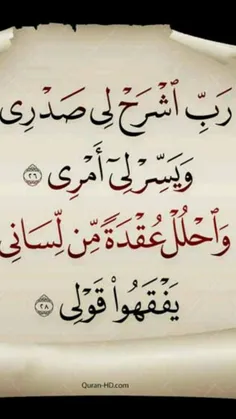 رَبِّ ٱشْرَحْ لِى صَدْرِى
وَيَسِّرْ لِىٓ أَمْرِى ٢٦
وَٱحْلُلْ عُقْدَةً مِّن لِّسَانِى
يَفْقَهُوا۟ قَوْلِى ٢٨
Quran-HD.com